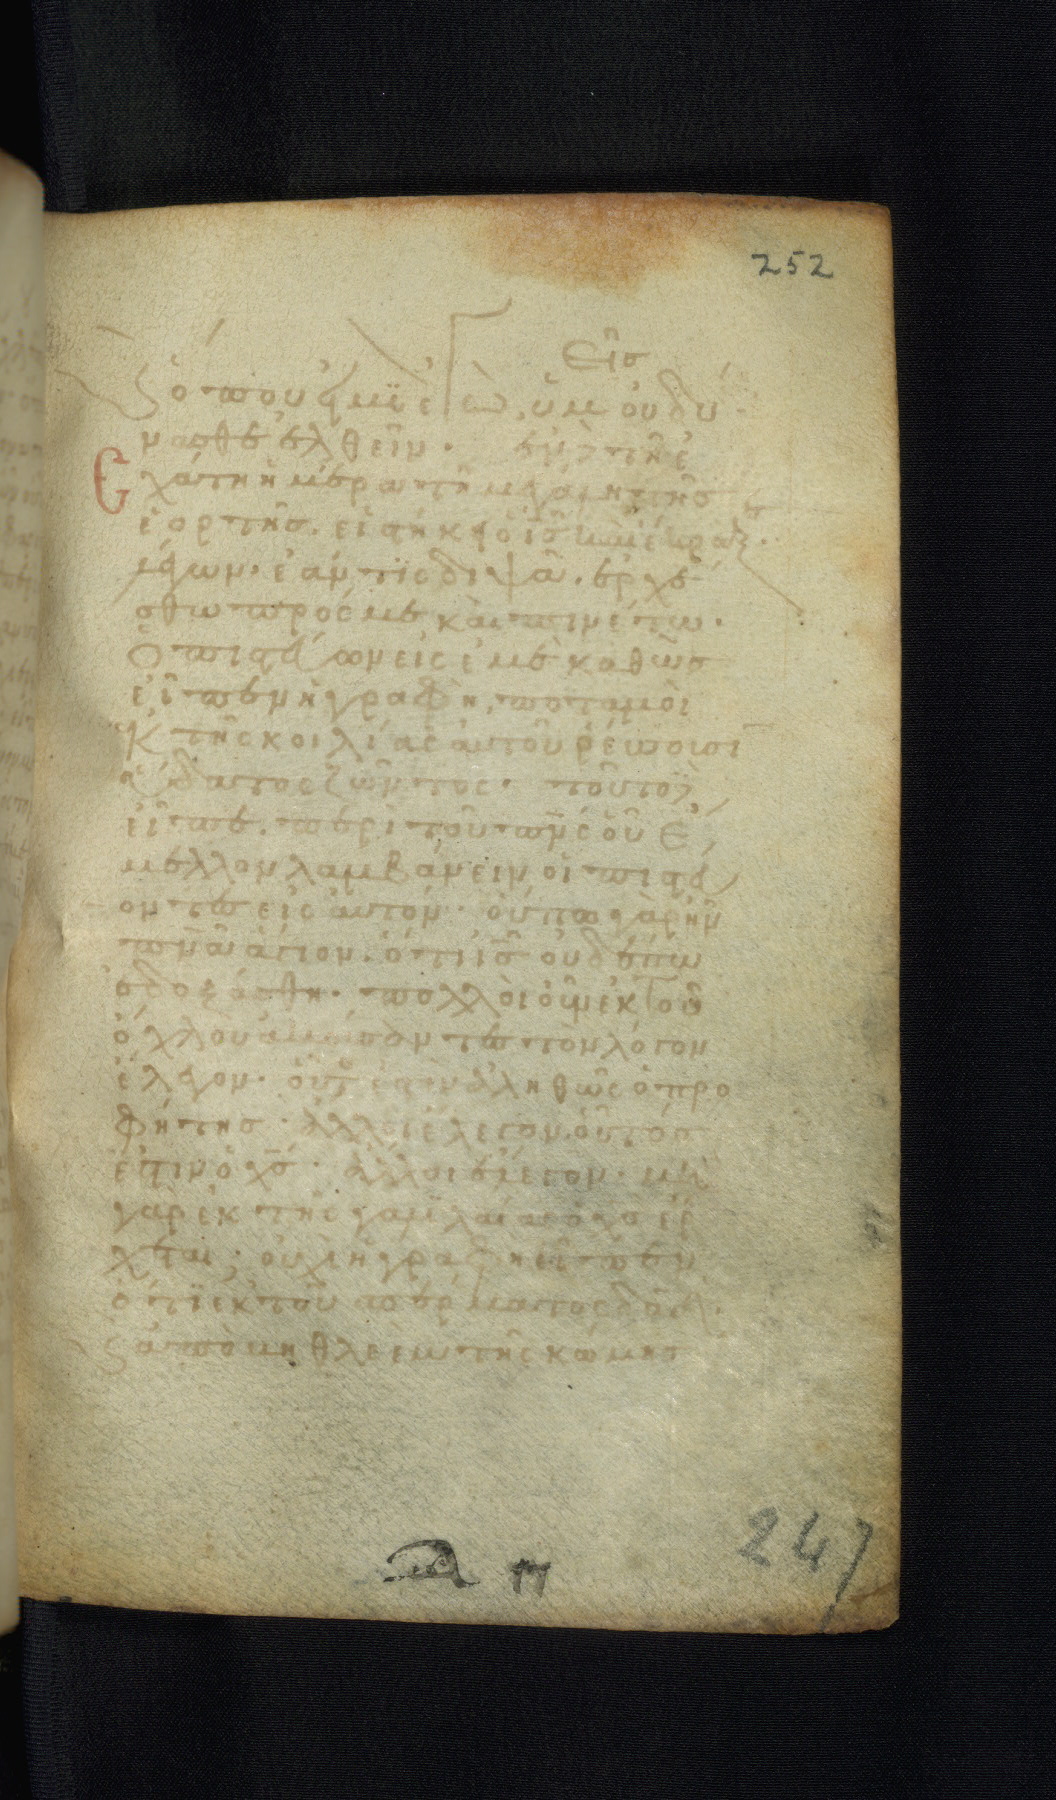 252
Εἰσ
ὅπου εἰμὶ ἐγὼ, ὑμ οὐ δύ
νασθε ἐλθεῖν. ἐν δὲ τῆ ἐ
χάτη ἡμέρα τῆ μεγάλη τῆσ
ἑορτῆσ. εἱστήκει ὁ ισ καὶ ἔκραξε
λέγων. ἐάν τισ διψᾶ. ἐρχέ
σθω πρόσ με καὶ πινέτω.
Ὁ πιστεύων εἰσ ἐμὲ καθὼσ
εἶπεν ἡ γραφὴ, ποταμοὶ
ἐκ τῆσ κοιλίασ αὐτοῦ ῥεύσουσι
ὕδατοσ ζῶντοσ. τοῦτο δὲ
εἶπε. περὶ τοῦ πνσ οὗ ἔ
μελλον λαμβάνειν οἱ πιστεύ
οντεσ εἰσ αὐτόν. οὔπω γὰρ ἦν
πνα ἅγιον. ὅτι ισ οὐδέπω
ἐδοξάσθη. πολλοὶ οὖν ἐκ τοῦ
ὄχλου ἀκούσαντεσ τὸν λόγον
ἔλεγον. οὗτόσ ἐστιν ἀληθῶσ ὁ προ
φήτησ. ἄλλοι ἔλεγον. οὗτόσ
ἐστιν ὁ χσ. ἄλλοι ἔλεγον. μὴ
γὰρ ἐκ τῆσ γαλιλαίασ ὁ χσ ἔρ
χεται. οὐχὶ ἡ γραφὴ εἶπεν
ὅτι ἐκ τοῦ σπέρματοσ δαδ.
καὶ ἀπὸ βηθλεὲμ τῆσ κώμησ
247